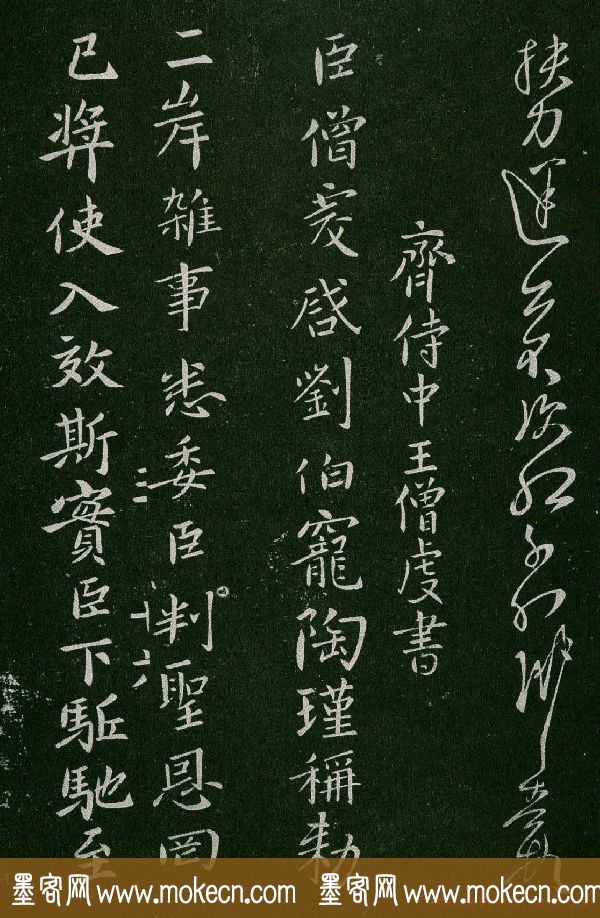 扶力遣不次
齊侍中王僧虔書
臣僧虔啓劉伯寵陶瑾稱勑
二岸雜事悉委臣判聖恩罔
二
十六
已弊使入效斯實臣下駈馳至
墨客网 www.mokecn.com 墨客网 www.mokecn.com